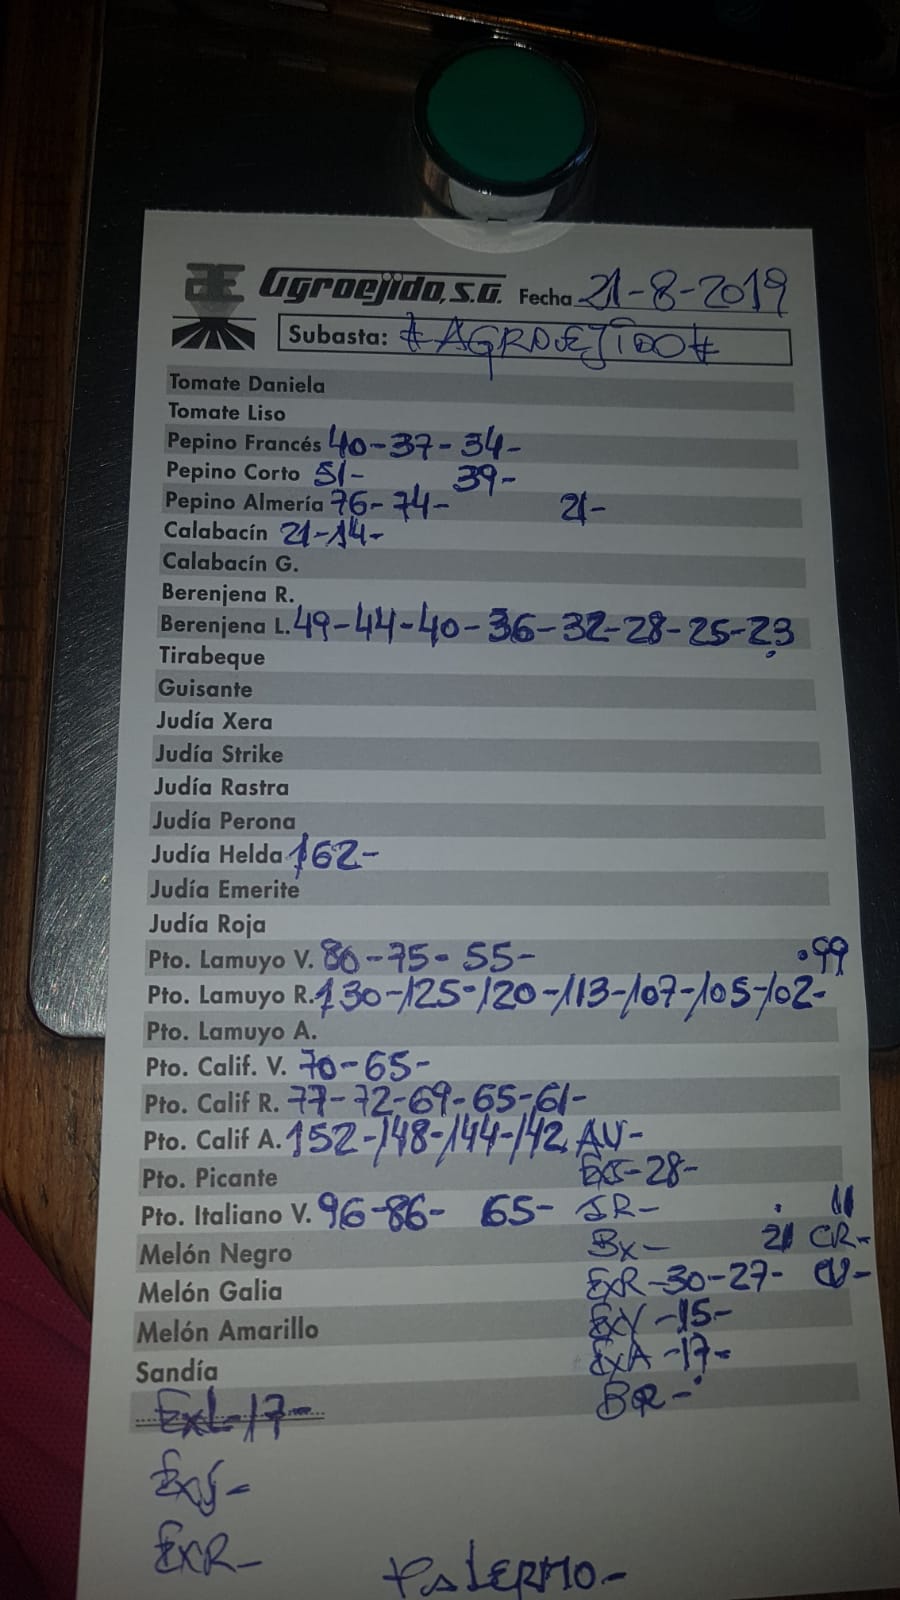 Agroejido, S.A. Fecha 21-8-2019
Subasta: #AGROEJIDO#
Tomate Daniela
Tomate Liso
Pepino Francés 40-37-34-
Pepino Corto 51- 39-
Pepino Almería 76-74- 21-
Calabacín 21-14-
Calabacín G.
Berenjena R.
Berenjena L. 49-44-40-36-32-28-25-23
Tirabeque
Guisante
Judía Xera
Judía Strike
Judía Rastra
Judía Perona
Judía Helda 162-
Judía Emerite
Judía Roja
Pto. Lamuyo V. 80-75-55- .99
Pto. Lamuyo R. 130-125-120-113-107-105-102-
Pto. Lamuyo A.
Pto. Calif. V. 70-65-
Pto. Calif R. 77-72-69-65-61-
Pto. Calif A. 152-148-144-142 AV-
Pto. Picante -28-
Pto. Italiano V. 96-86- 65- JR- 11
Melón Negro Bx- 21 CR-
Melón Galia ExR-30-27- CV-
Melón Amarillo ExV-15-
Sandía ExA-17-
ExL-17- BR-
ExJ-
ExR-
PALERMO-